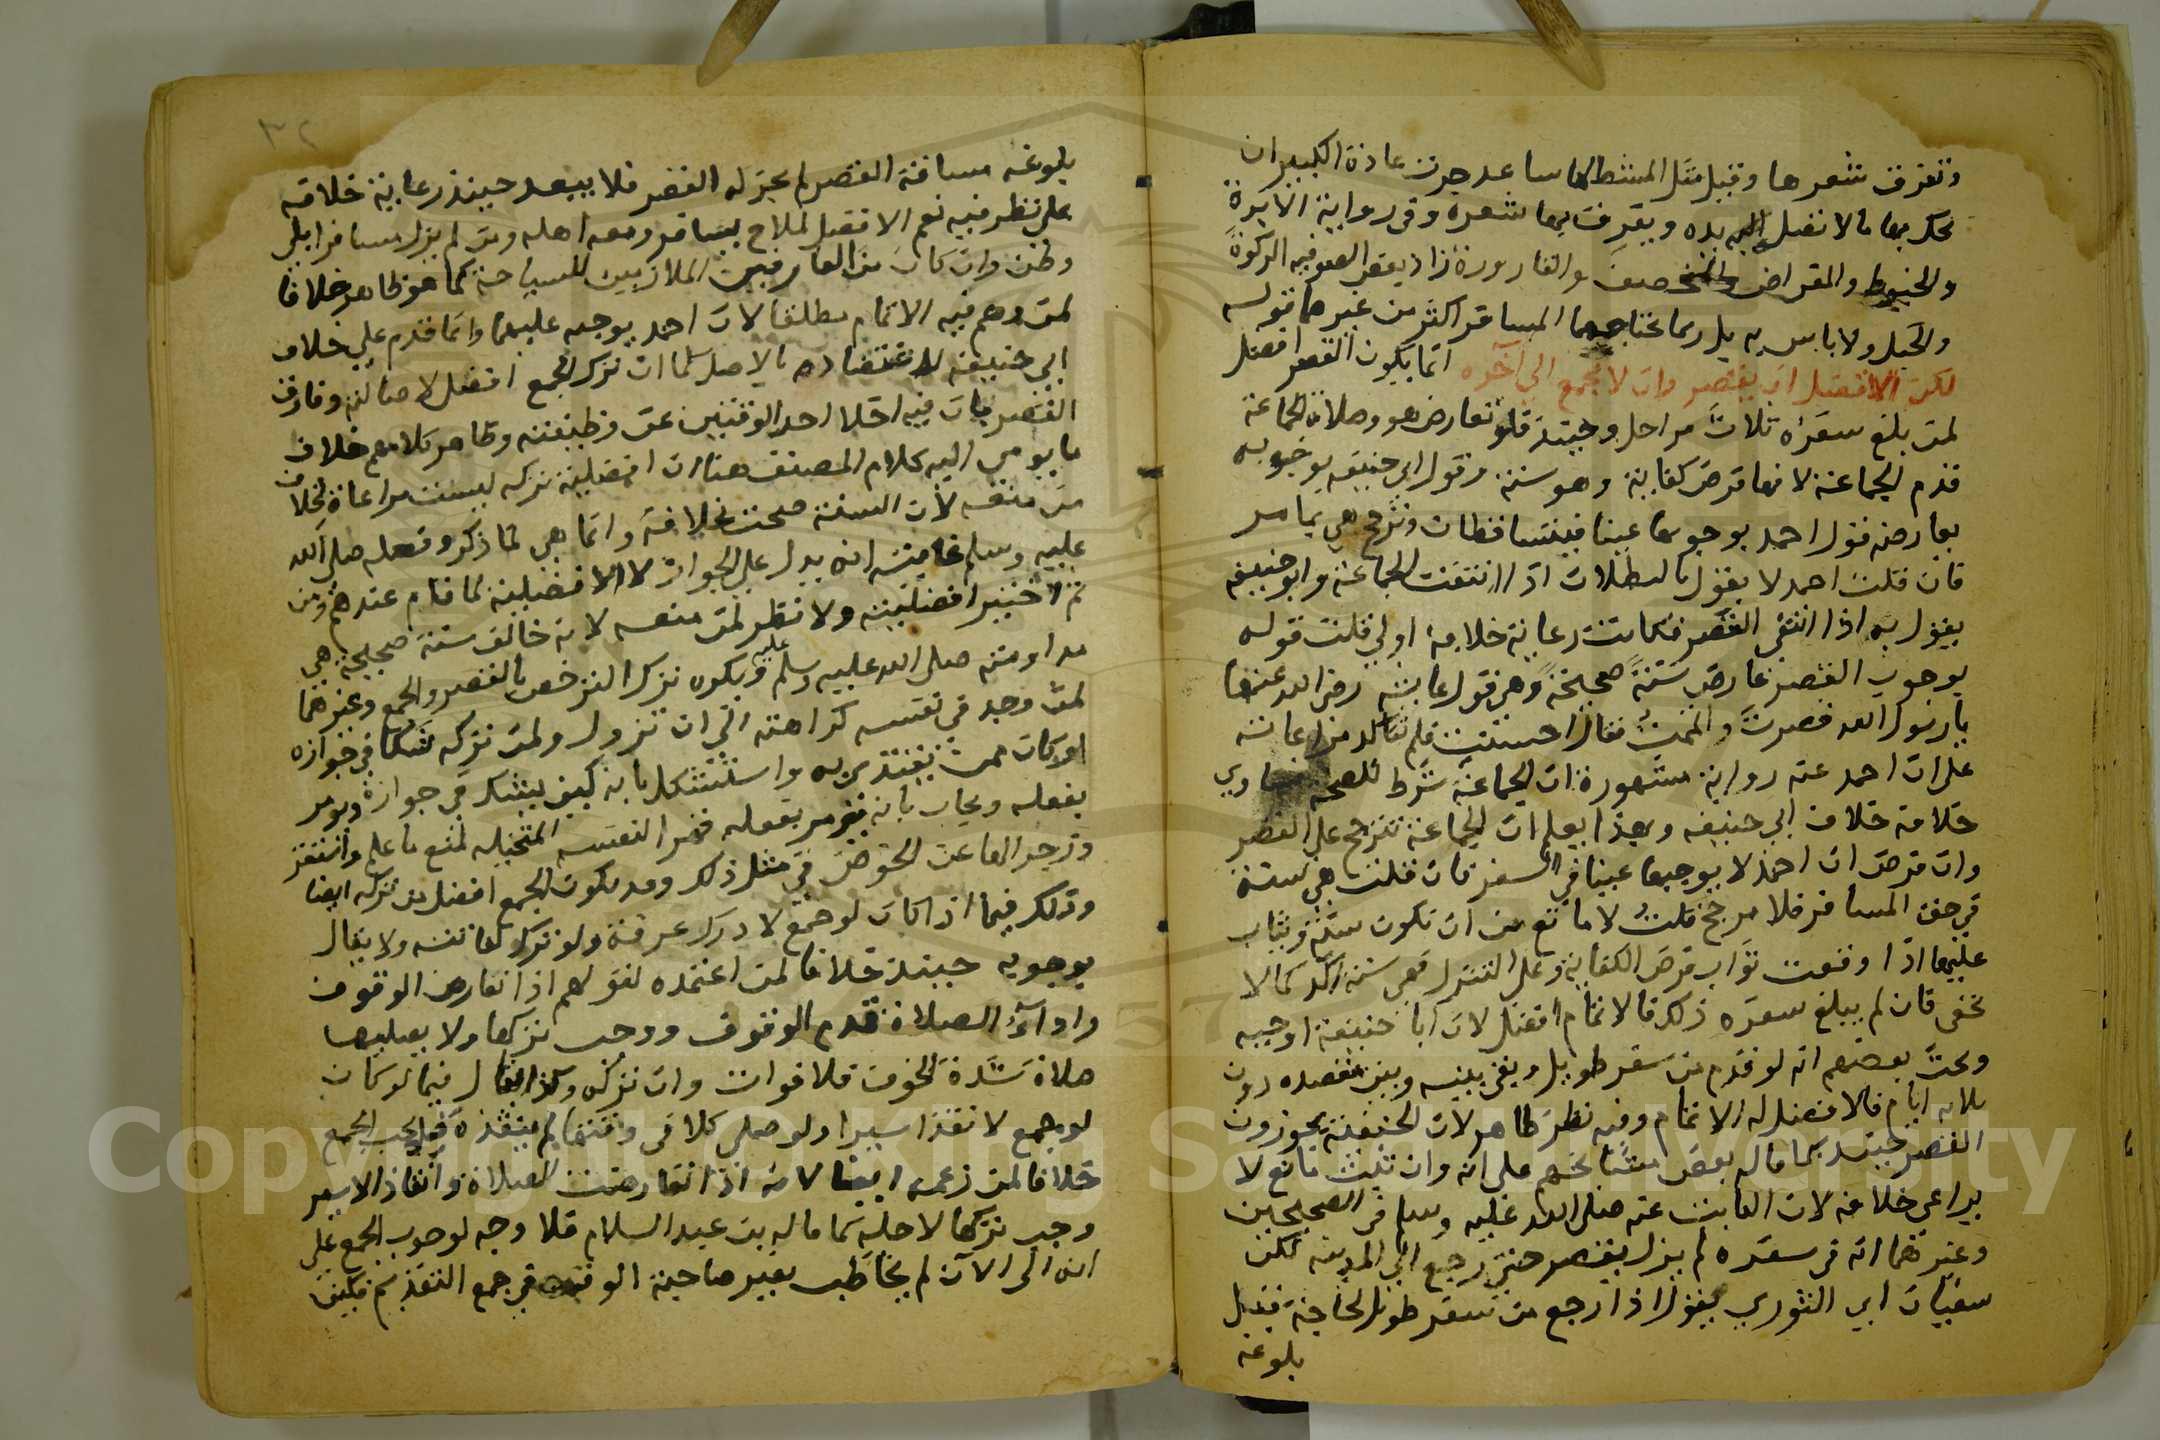 وتفرق شعرها وقيل مثل المشط لها ساعد جرت عادة الكبير ان
تحك بها ما لا تصل اليه يده ويفرق بها شعره وفي رواية الابرة
والخيوط والمقراض والقارورة زاد بعض الصوفيه الركوة
والحبل ولا باس به بل ربما يحتاجهما المسافر اكثر من غيرهما قوله
لكن الافضل ان يقصر وان لا يجمع الى آخره انما يكون القصر افضل
لمن بلغ سفره ثلاث مراحل وحينئذ فلو تعارض هو وصلاة الجماعة
قدم الجماعة لانها فرض كفاية وهو سنة وقول ابي حنيفه بوجوبه
يعارضه قول احمد بوجوبها عينا فيتساقطان وترجح هي بما مر
فان قلت احمد لا يقول بالبطلان اذا انتفت الجماعة وابو حنيفه
يقول به اذا انتفى القصر فكانت رعاية خلافه اولي قلت قوله
بوجوب القصر عارض سنة صحيحة وهي قول عائشه رضي الله عنها
يا رسول الله قصرت واتممت فقال احسنت فلم تتاكد مراعاته
على ان احمد عنه رواية مشهورة ان الجماعة شرط للصحة
خلافه خلاف ابي حنيفه وبهذا يعلم ان الجماعة تترجح على القصر
وان فرض ان احمد لا يوجبها عينا في السفر فان قلت هي سنة
في حق المسافر فلا مرجح قلت لا مانع من ان تكون سنة ويثاب
عليها اذا وقعت ثواب فرض الكفاية وعلى التنزل فهي سنة آكد كما لا
يخفى فان لم يبلغ سفره ذلك فالاتمام افضل لان ابا حنيفة اوجبه
وبحث بعضهم انه لو قدم من سفر طويل وبقى بينه وبين مقصده دون
ثلاثه ايام فالافضل له الاتمام وفيه نظر ظاهر لان الحنفية يجوزون
القصر حينئذ كما قاله بعض مشائخهم على انه وان ثبت مانع لا
يراعى خلافه لان الثابت عنه صلى الله عليه وسلم في الصحيحين
وغيرهما انه في سفره لم يزل يقصر حتى رجع الى المدينه لكن
سفيان اي الثوري يقول اذا رجع من سفر طويل لحاجة قبل
بلوغه
٣٢
بلوغه مسافة القصر لم يجز له القصر فلا يبعد حينئذ رعاية خلافه
على نظر فيه نعم الافضل لملاح يسافر ومعه اهله ومن لم يزل مسافرا بلا
وطن وان كان من العارفين الملازمين للسياحة كما هو ظاهر خلافا
لمن وهم فيه الاتمام مطلقا لان احمد يوجبه عليهما وانما قدم على خلاف
ابي حنيفه لاعتضاده بالاصل كما ان ترك الجمع افضل لاصالته وفارق
القصر بان فيه اخلا احد الوقتين عن وظيفته وظاهر كلامهم خلاف
ما يومي اليه كلام المصنف هنا ان افضلية تركه ليست مراعاة لخلاف
من منعه لان السنة صحت بخلافه وانما هي لما ذكر وفعله صلى الله
عليه وسلم غايته انه يدل على الجواز لا الافضلية لما قام عندهم من
ثم اختير افضليته ولا نظر لمن منعه لانه خالف سنة صحيحة هي
مداومته صلى الله عليه وسلم عليه ويكره ترك الترخص بالقصر والجمع وغيرهما
لمن وجد في نفسه كراهته الى ان تزول ولمن تركه شكا في جوازه
او كان ممن يقتدى به واستشكل بانه كيف يشك في جوازه ويومر
بفعله ويجاب بانه يومر بفعله قهرا لنفسه المتخيله لمنع ما علم واستقر
وزجرا لها عن الخوض في مثل ذلك وقد يكون الجمع افضل من تركه ايضا
وذلك فيما اذا كان لو جمع لادرك عرفة ولو ترك لفاتته ولا يقال
بوجوبه حينئذ خلافا لمن اعتمده لقولهم اذا تعارض الوقوف
واداء الصلاة قدم الوقوف ووجب تركها ولا يصليها
صلاة شدة الخوف فلا فوات وان تركه وكذا يقال فيما لو كان
لو جمع لانقذ اسيرا ولو صلى كلا في وقتها لم ينقذه فلا يجب الجمع
خلافا لمن زعمه ايضا لانه اذا تعارضت الصلاة وانقاذ الاسير
وجب تركها لاجله كما قاله بن عبد السلام فلا وجه لوجوب الجمع على
انه الى الآن لم يخاطب بغير صاحبة الوقت في جمع التقديم فكيف
Copyright © King Saud University
1957